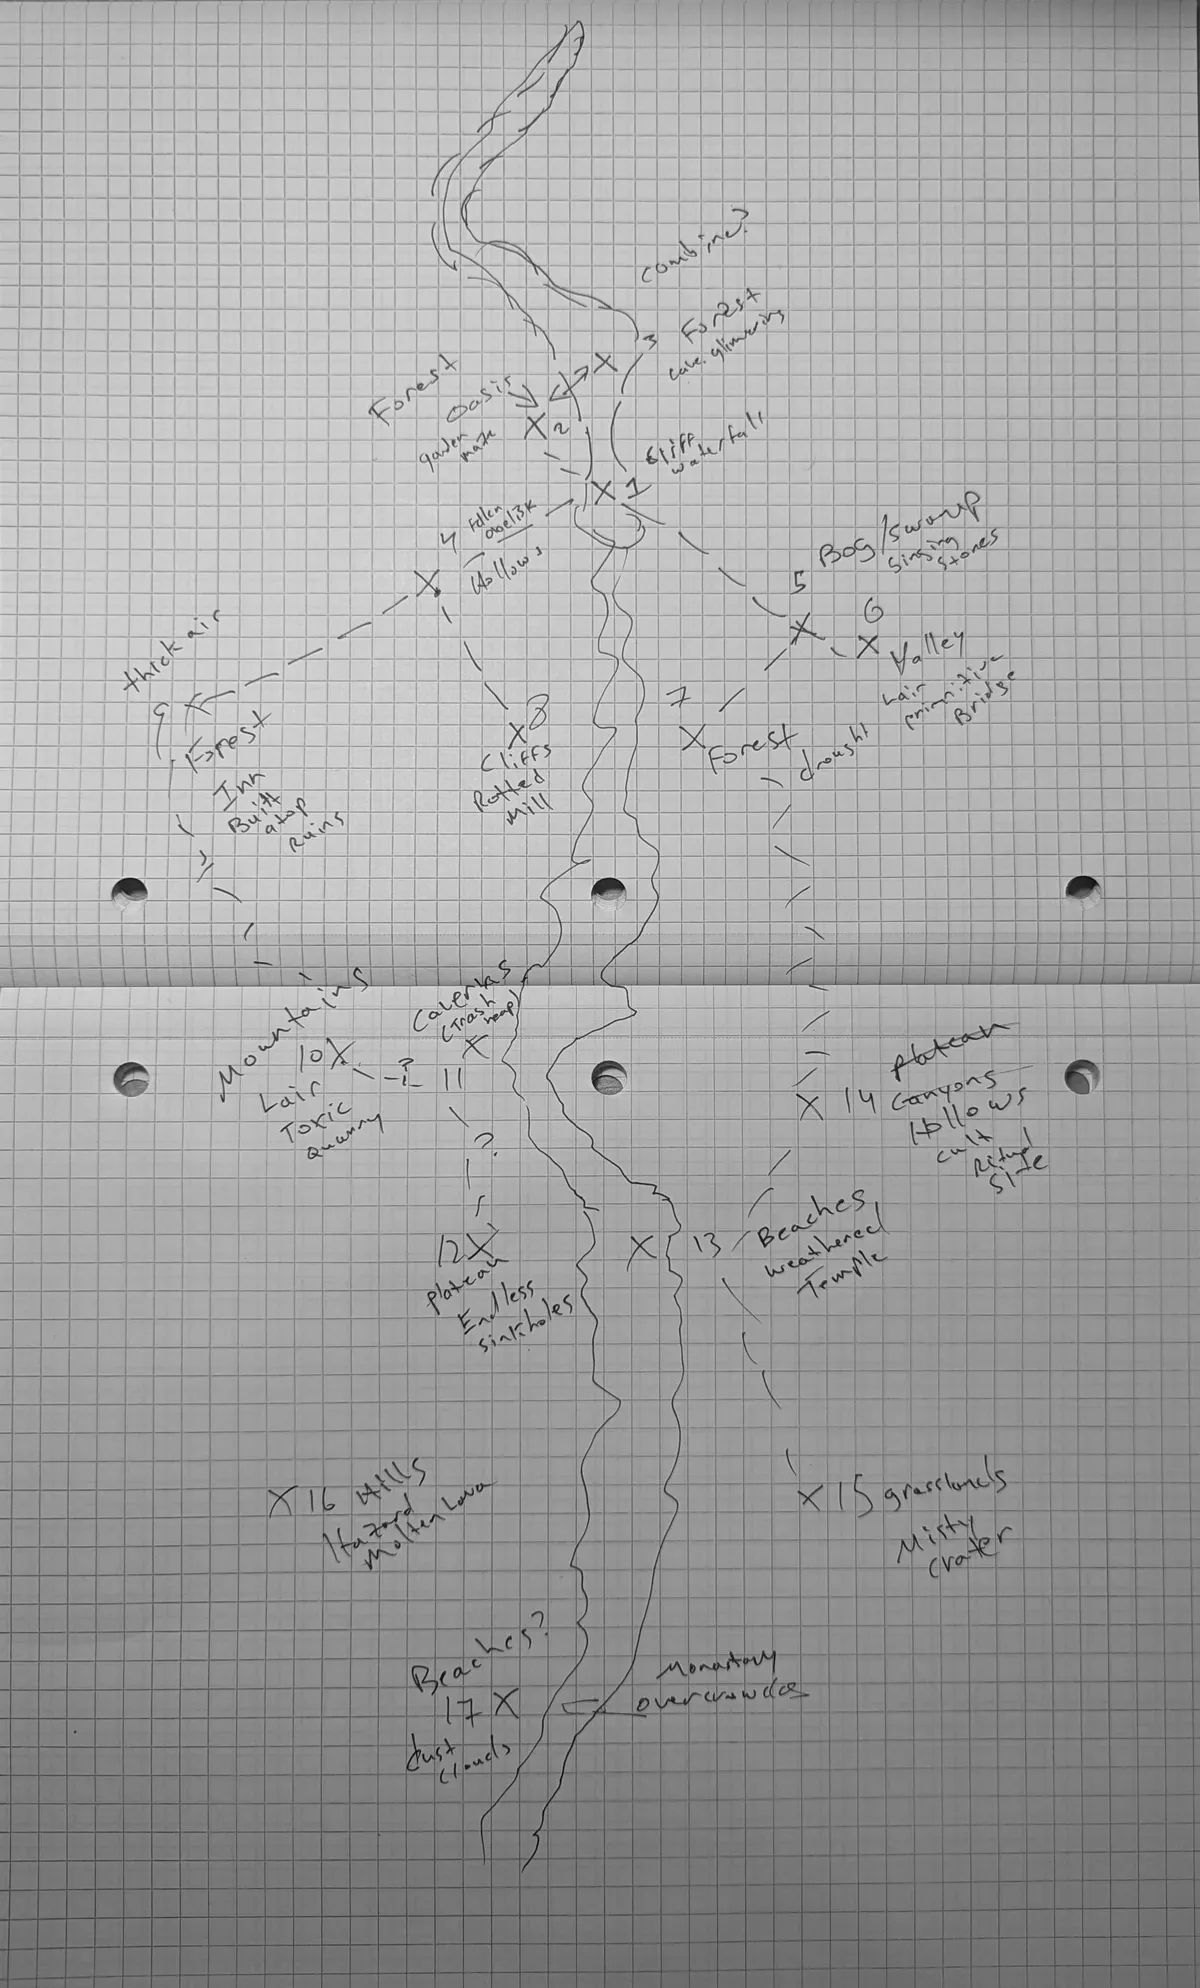 combine?
3 Forest
cave. glimmering
Forest
Oasis
X 2
garden
maze
X
Cliff
waterfalls
X 1
4 Fallen
obelisk
Hollows
X
5 Bog/swamp
Singing
Stones
X
6
X Valley
Lair
primitive
Bridge
7
X Forest
drought
thick air
9 X
Forest
Inn
Built
atop
Ruins
X 8
Cliffs
Rotted
Mill
Mountains
10 X
Lair
Toxic
Quarry
?
Caverns
(Trash
heap)
X
11
?
12 X
plateau
Endless
sinkholes
X 13
Beaches
weathered
Temple
plateau
X 14 Canyons
Hollows
cult
Ritual
Site
X 15 grasslands
Misty
Crater
X 16 Hills
Hazard
Molten Lava
Beaches?
17 X
dust
clouds
Monastary